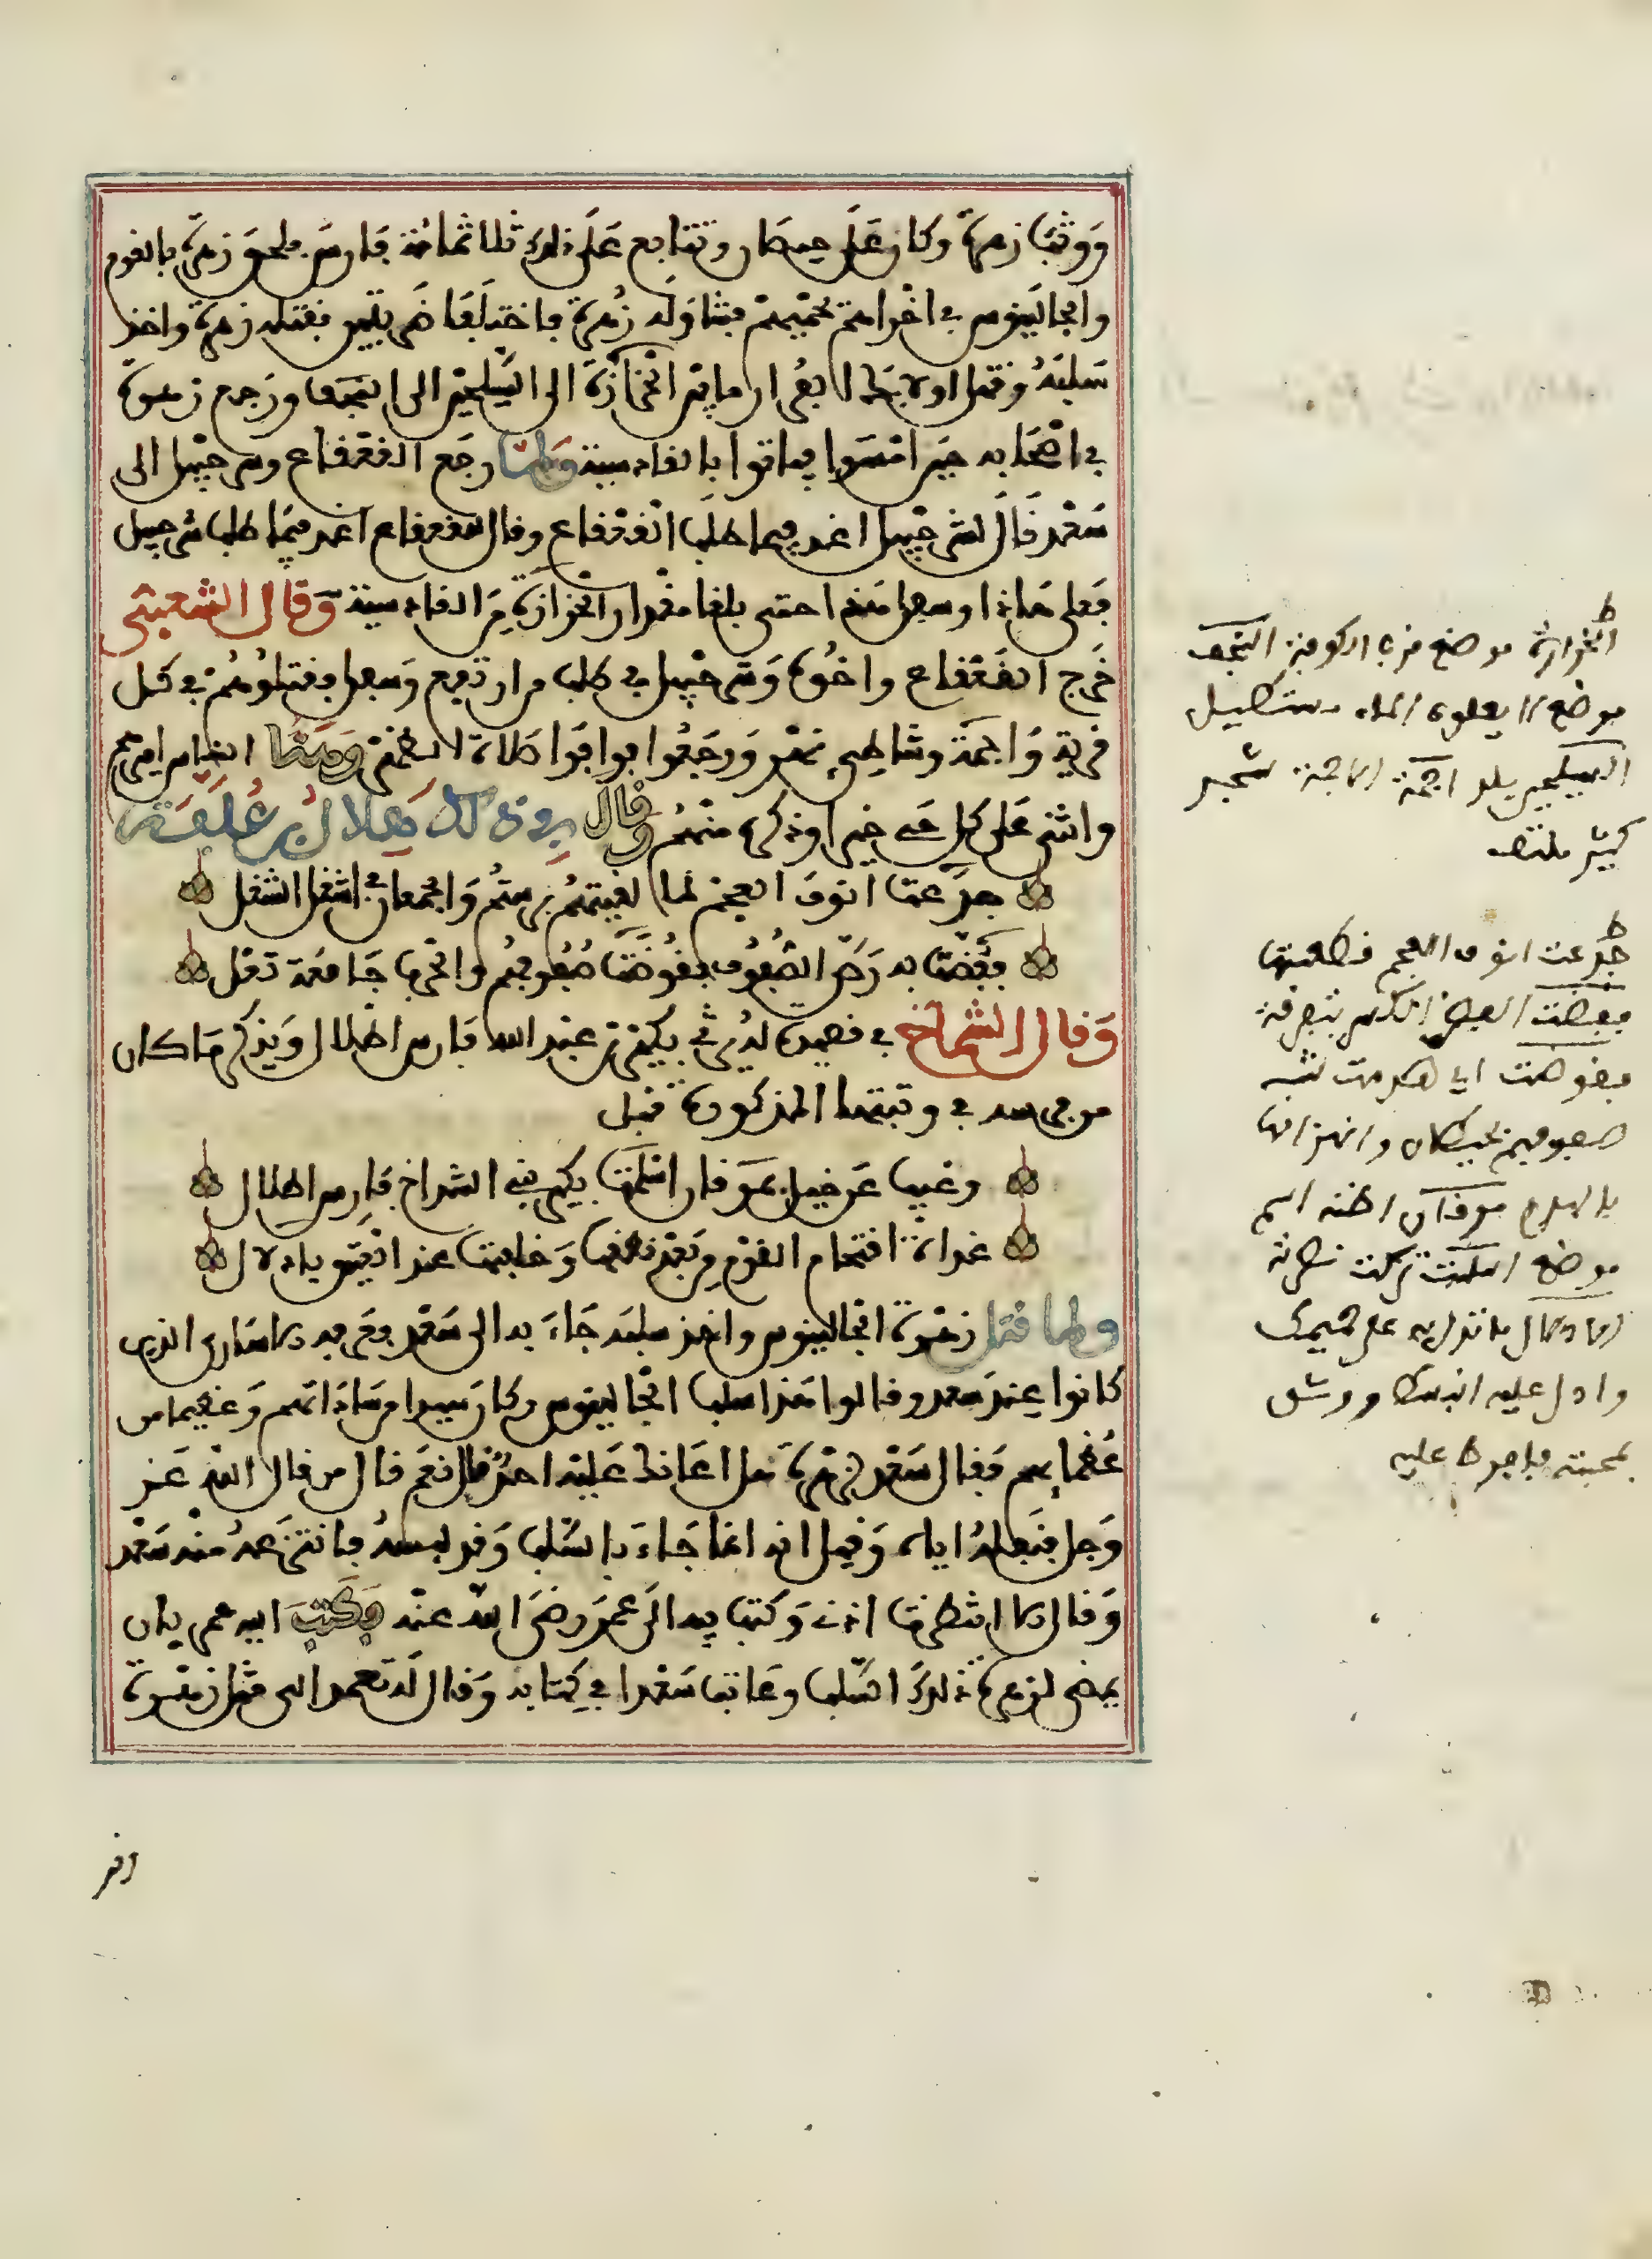 ووثب زهرة وكان على حصان وتتابع على ذلك ثلاثمائة فارس فلحق زهرة بالقوم
والجالينوس في اخراهم يحميهم فشاوله زهرة فاختلفا ضربتين فقتله زهرة واخذ
سلبه وقتلوا ما بين الخرارة الى السيلحين الى النجف ورجع زهرة
في اصحابه حين امسوا فباتوا بالقادسية ولما رجع القعقاع وشرحبيل الى
سعد قال لشرحبيل اغد فيما طلب القعقاع وقال للقعقاع اغد فيما طلب شرحبيل
فعلى هاذا وسفل هذا حتى بلغا مقدار الخرارة من القادسية وقال الشعبي
خرج القعقاع واخوه وشرحبيل في طلب من ارتفع وسفل فقتلوهم في كل
قرية واجمة وشاطئ نهر ورجعوا فوافوا صلاة الظهر وهنا الناس اميرهم
واثنى على كل حي خيرا وذكره منهم وقال في ذلك هلال بن علفة
جدعت انوف العجم لما لقيتهم برستم والجمعان في اشغل الشغل
ففضت به رص الصفوف فقوضت صفوفهم والحرب جامعة تغل
وقال الشماخ في قصيدة له يرثي بكير بن عبد الله فارس اطلال ويذكر ما كان
من فرسه في وثبتها المذكورة قبل
وغيب عن خيل بموقان اسلمت بكير بني الشداخ فارس اطلال
غداة اقتحام القوم من بعد نطقها
ولما قتل زهرة الجالينوس واخذ سلبه جاء به الى سعد فعرفه الاسارى الذين
كانوا عند سعد وقالوا هذا سلب الجالينوس وكان سيدا من ساداتهم وعظيما من
عظمايهم فقال سعد لزهرة هل اعانك عليه احد قال نعم قال من قال الله عز
وجل فنفله اياه وقيل انه انما جاء بالسلب وقد لبسه فانتزعه منه سعد
وقال الا انتظرت اذني وكتب فيه الى عمر رضي الله عنه فكتب اليه عمر بان
يمضي لزهرة ذلك السلب وعاتب سعدا في كتابه وقال له تعمد الى مثل زهرة
الخرارة موضع قرب الكوفة النجف
موضع لا يعلوه الماء مستطيل
السيلحين بلد اجمة الاجمة شجر
كثير ملتف
جدعت انوف العجم قطعتها
ففضت الفض الكسر بتفرقة
فقوضت اي هدمت شبه
صفوفهم بحيطان وانهزامها
بالهدم موقان اظنه اسم
موضع اسلمت تركت نصرته
وادل عليه انبسط ووثق
بمحبته فافرط عليه